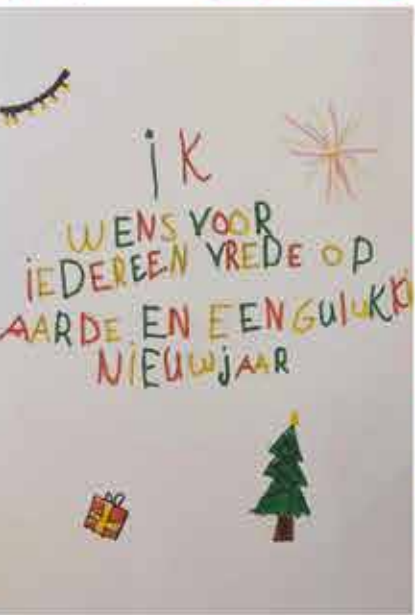 iK
WENS VOOR
iEDEREEN VREDE OP
AARDE EN EEN GULUKKI
NiEUWjAAR